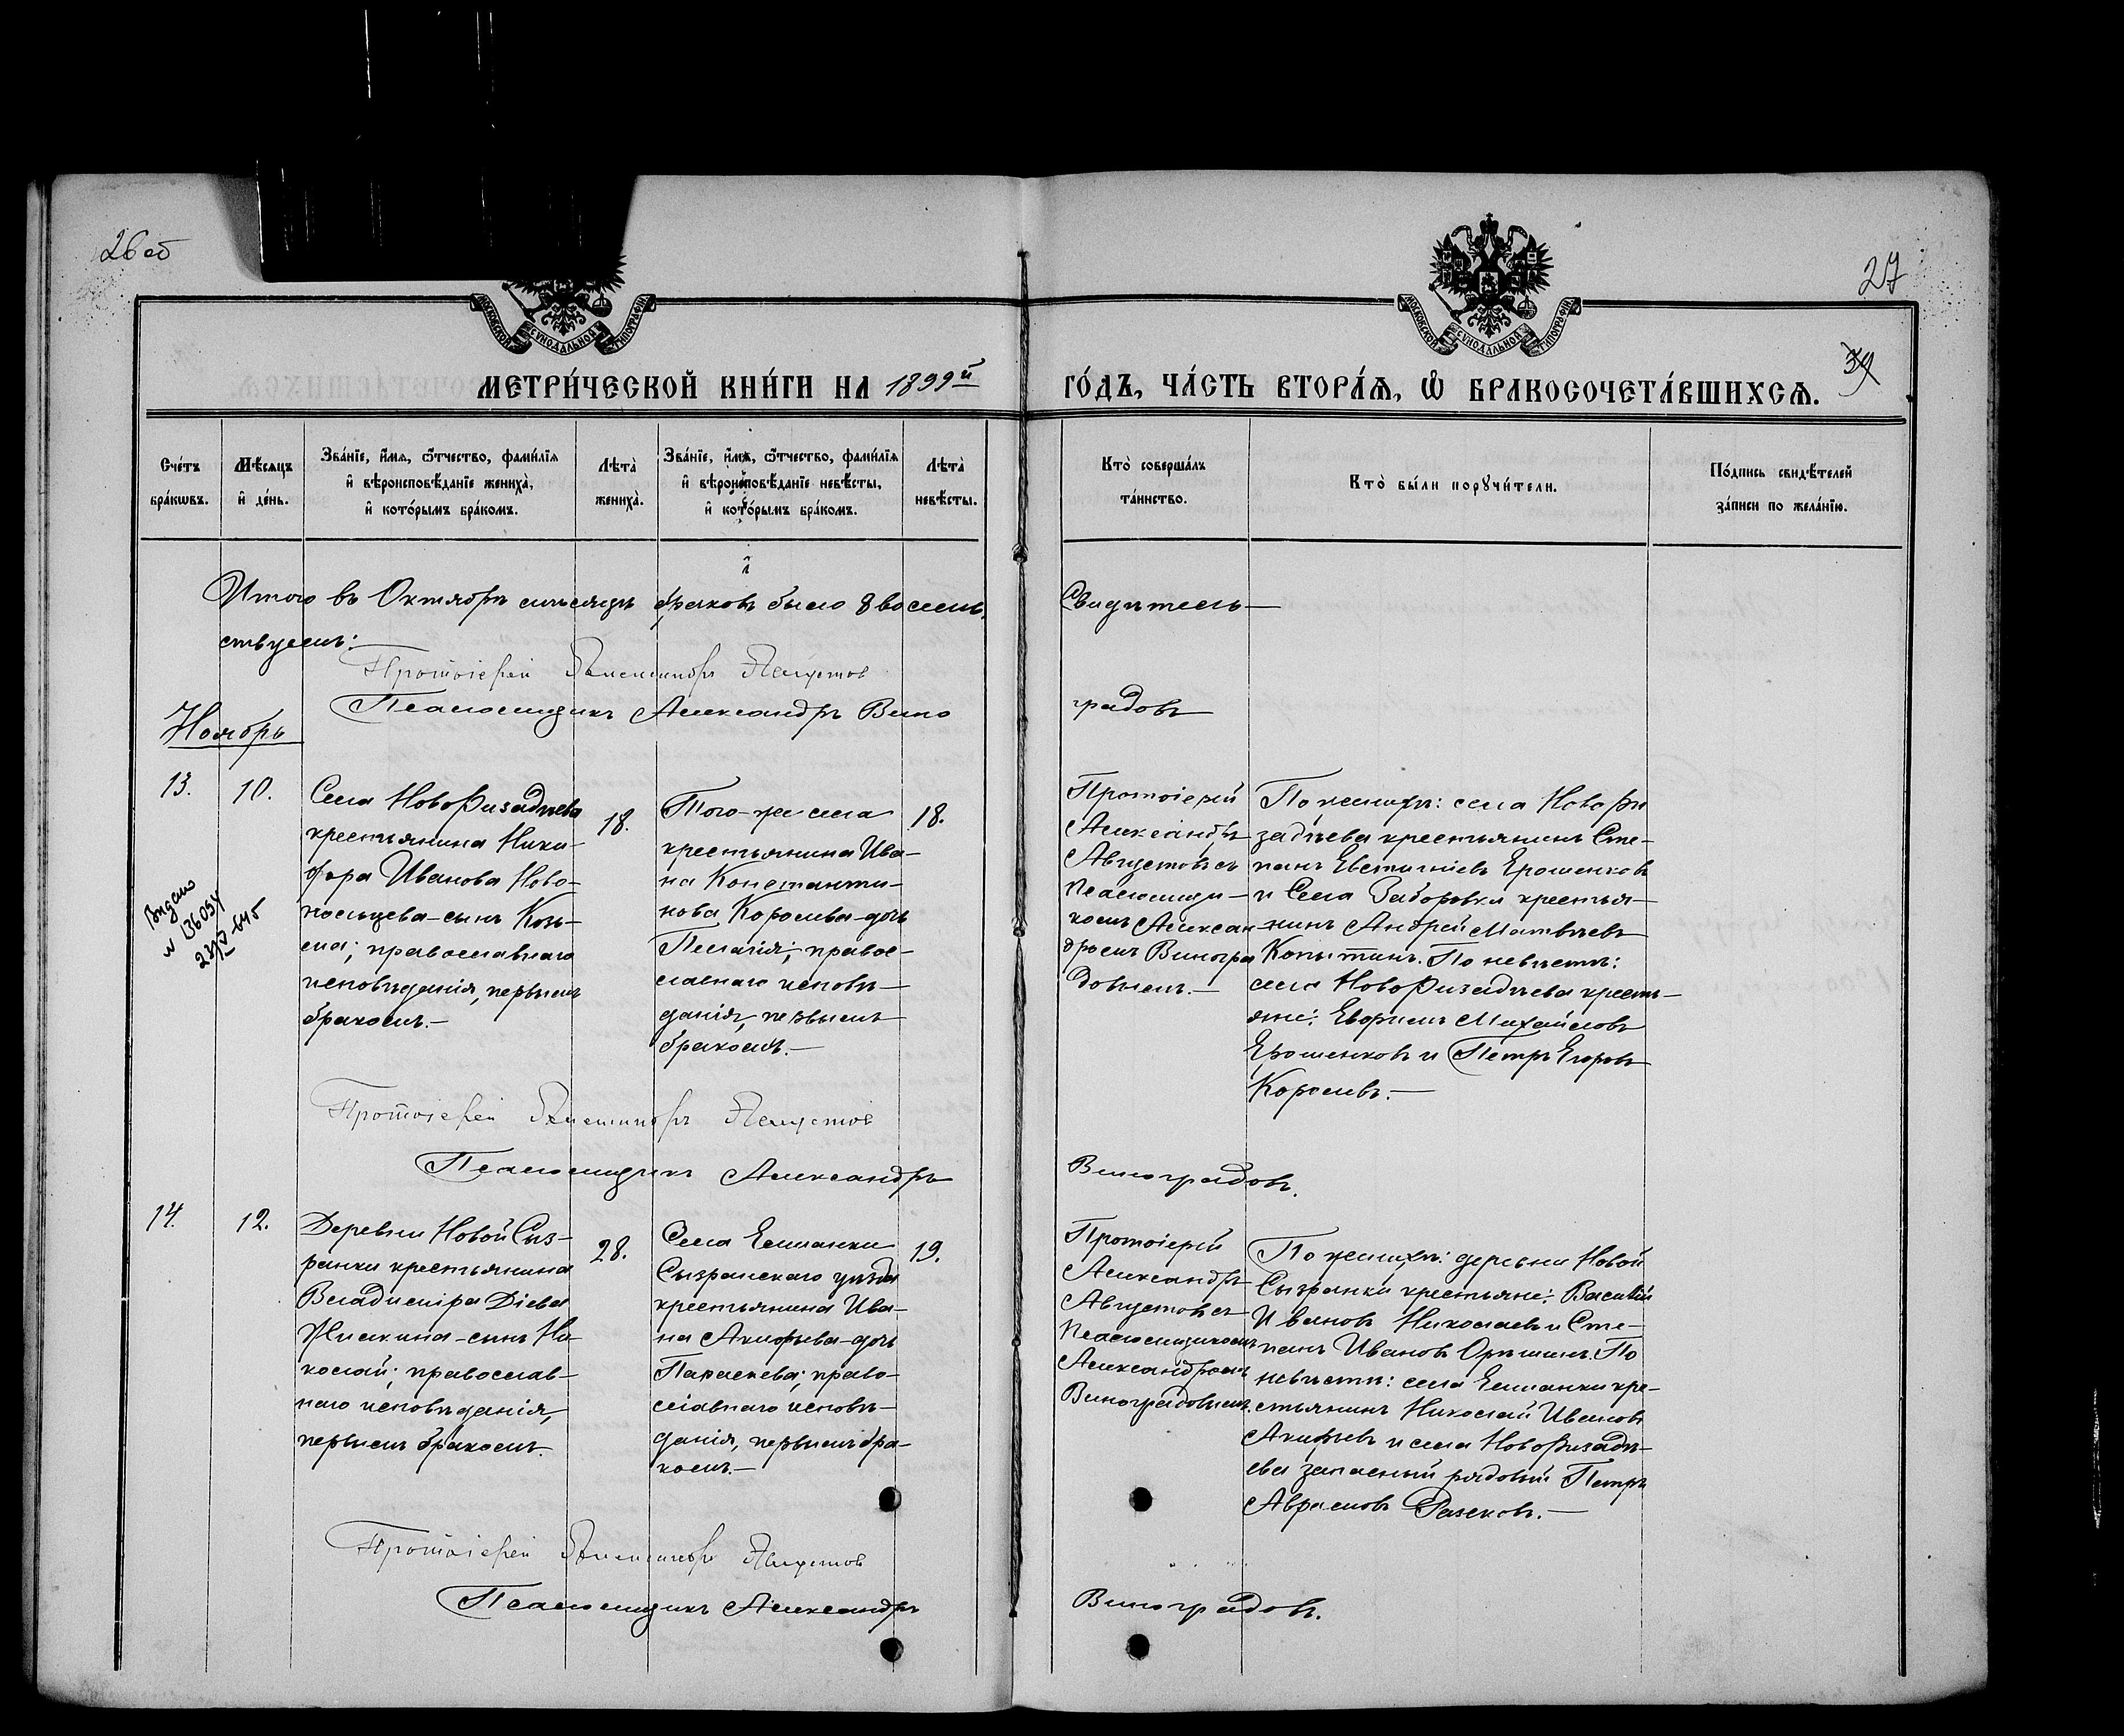 26 об
27
39
МОСКОВСКОЙ СѴНОДАЛЬНОЙ ТИПОГРАФІИ
МОСКОВСКОЙ СѴНОДАЛЬНОЙ ТИПОГРАФІИ
МЕТРИ́ЧЕСКОЙ КНИ́ГИ НА 1899й ГО́ДЪ, ЧА́СТЬ ВТОРА́Ѧ, Ѿ БРАКОСОЧЕТА́ВШИХСѦ.
Сче́тъ
бра́кѡвъ.
Мѣ́сяцъ
и де́нь.
Зва́нїе, и҆́мѧ, ѻ҆́тчество, фами́лїѧ
и҆ вѣроисповѣ́данїе жениха̀,
и҆ кото́рымъ бра́комъ.
Лѣта̀
жениха̀.
Зва́нїе, и҆́мѧ, ѻ҆́тчество, фами́лїѧ
и҆ вѣроисповѣ́данїе невѣ́сты,
и҆ кото́рымъ бра́комъ.
Лѣта̀
невѣ́сты.
Кто̀ соверша́лъ
та́инство.
Кто̀ бы́ли порꙋчи́тели.
По́дпись свидѣ́телей
за́писи по жела́нїю.
Итого въ Октябрѣ мѣсяцѣ браковъ было 8 восемь. Свидѣтель-
ствуемъ:
Протоіерей Александръ Августовъ
Псаломщикъ Александръ Вино
градовъ
Ноябрь
13.
10.
Села Новоризадѣева
крестьянина Ники-
фора Иванова Ново-
посельцева-сынъ Козь-
ма; православнаго
исповѣданія, первымъ
бракомъ.-
18.
Того-же села
крестьянина Ива-
на Константи-
нова Королева-дочь
Пелагія; правос-
лавнаго исповѣ-
данія, первымъ
бракомъ.-
18.
Протоіерей
Александръ
Августовъ съ
псаломщи-
комъ Алексан
дромъ Виногра
довымъ.-
По женихѣ: села Новори
задѣева крестьянинъ Сте-
панъ Евстигнѣевъ Ерошенковъ
и Села Заборовки крестья-
нинъ Андрей Матвѣевъ
Копытинъ. По невѣстѣ:
села Новоризадѣева кресть-
яне: Ефимъ Михайловъ
Ерошенковъ и Петръ Егоровъ
Королевъ.-
Выдано
Протоіерей Александръ Августовъ
Псаломщикъ Александръ
Виноградовъ.
14.
12.
Деревни Новой Сыз-
ранки крестьянина
Владиміра Діева
сынъ Ни
колай; православ-
наго исповѣданія,
первымъ бракомъ.
28.
Села Елшанки
Сызранскаго уѣзда
крестьянина Ива-
на Акифьева-дочь
Параскева; право-
славнаго исповѣ-
данія, первымъ бра-
комъ.-
19.
Протоіерей
Александръ
Августовъ съ
псаломщикомъ
Александромъ
Виноградовымъ.
По женихѣ: деревни Новой
Сызранки крестьяне: Василій
Ивановъ Николаевъ и Сте-
панъ Ивановъ Орѣшинъ. По
невѣстѣ: села Елшанки кре-
стьянинъ Николай Ивановъ
Акифьевъ и села Новоризадѣ-
ева запасный рядовой Петръ
Аврамовъ
Протоіерей Александръ Августовъ
Псаломщикъ Александръ
Виноградовъ.